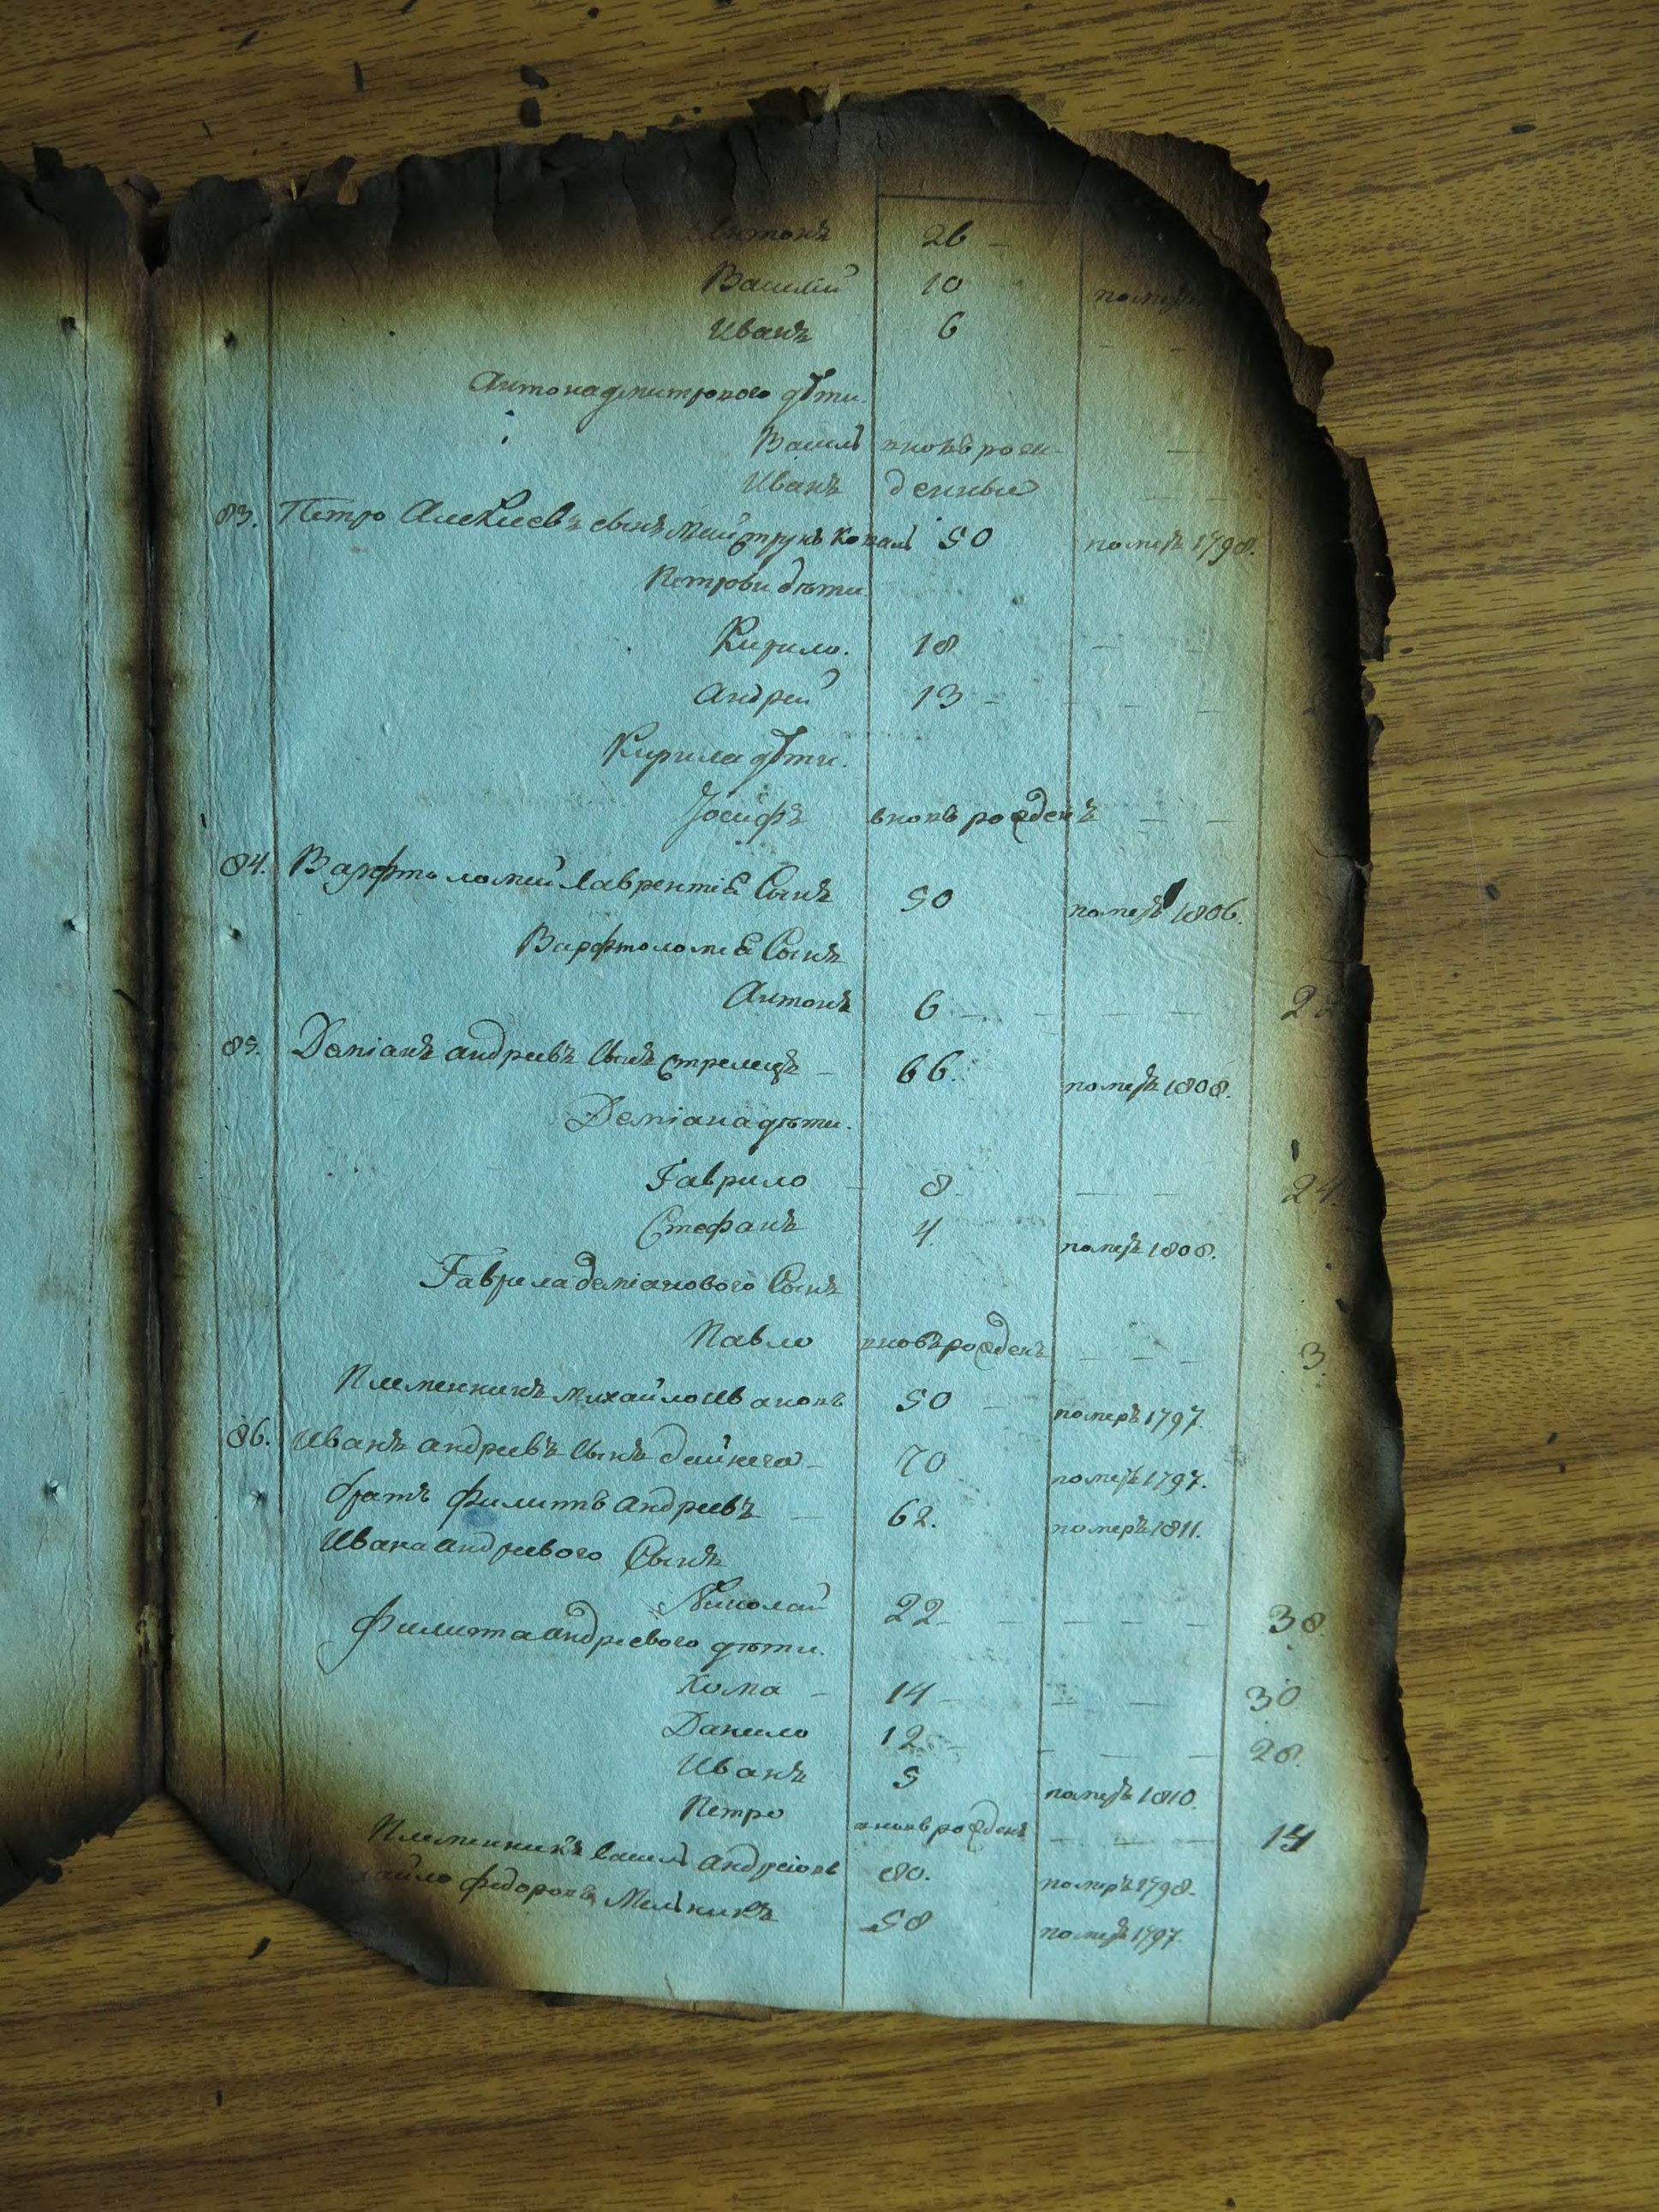 Антонъ 26
Василій 10 померъ
Иванъ 6
Антона дмитрового дѣти
Василь вновь рож-
Иванъ денные
83. Петро Алексеевъ сынъ коваль 50 померъ 1798.
Петрови дѣти
Кирило. 18
Андрей 13
Кирила дѣти.
Іосифъ вновь рожденъ
84. Варфтоломей Лаврентіевъ Сынъ 50 померъ 1806.
Варфтоломея Сынъ
Антонъ 6
85. Деміанъ андреевъ Сынъ Стрелецъ 66. померъ 1808.
Деміана дѣти.
Гаврило 8 24.
Стефанъ 4 померъ 1808.
Гаврила деміанового Сынъ
Павло вновь рожденъ 3
Племенникъ Михайло Ивановъ 50 померъ 1797.
86. Иванъ андреевъ Сынъ дейнега 70 померъ 1797.
братъ Филиппъ андреевъ 62. померъ 1811.
Ивана андреевого Сынъ
Николай 22 38.
Филиппа андреевого дѣти.
Хома 14 30
Данило 12 28.
Иванъ 5 померъ 1810.
Петро вновь рожденъ 14
Племенникъ василь 80. померъ 1798.
федоровъ Мельникъ 58 померъ 1797.